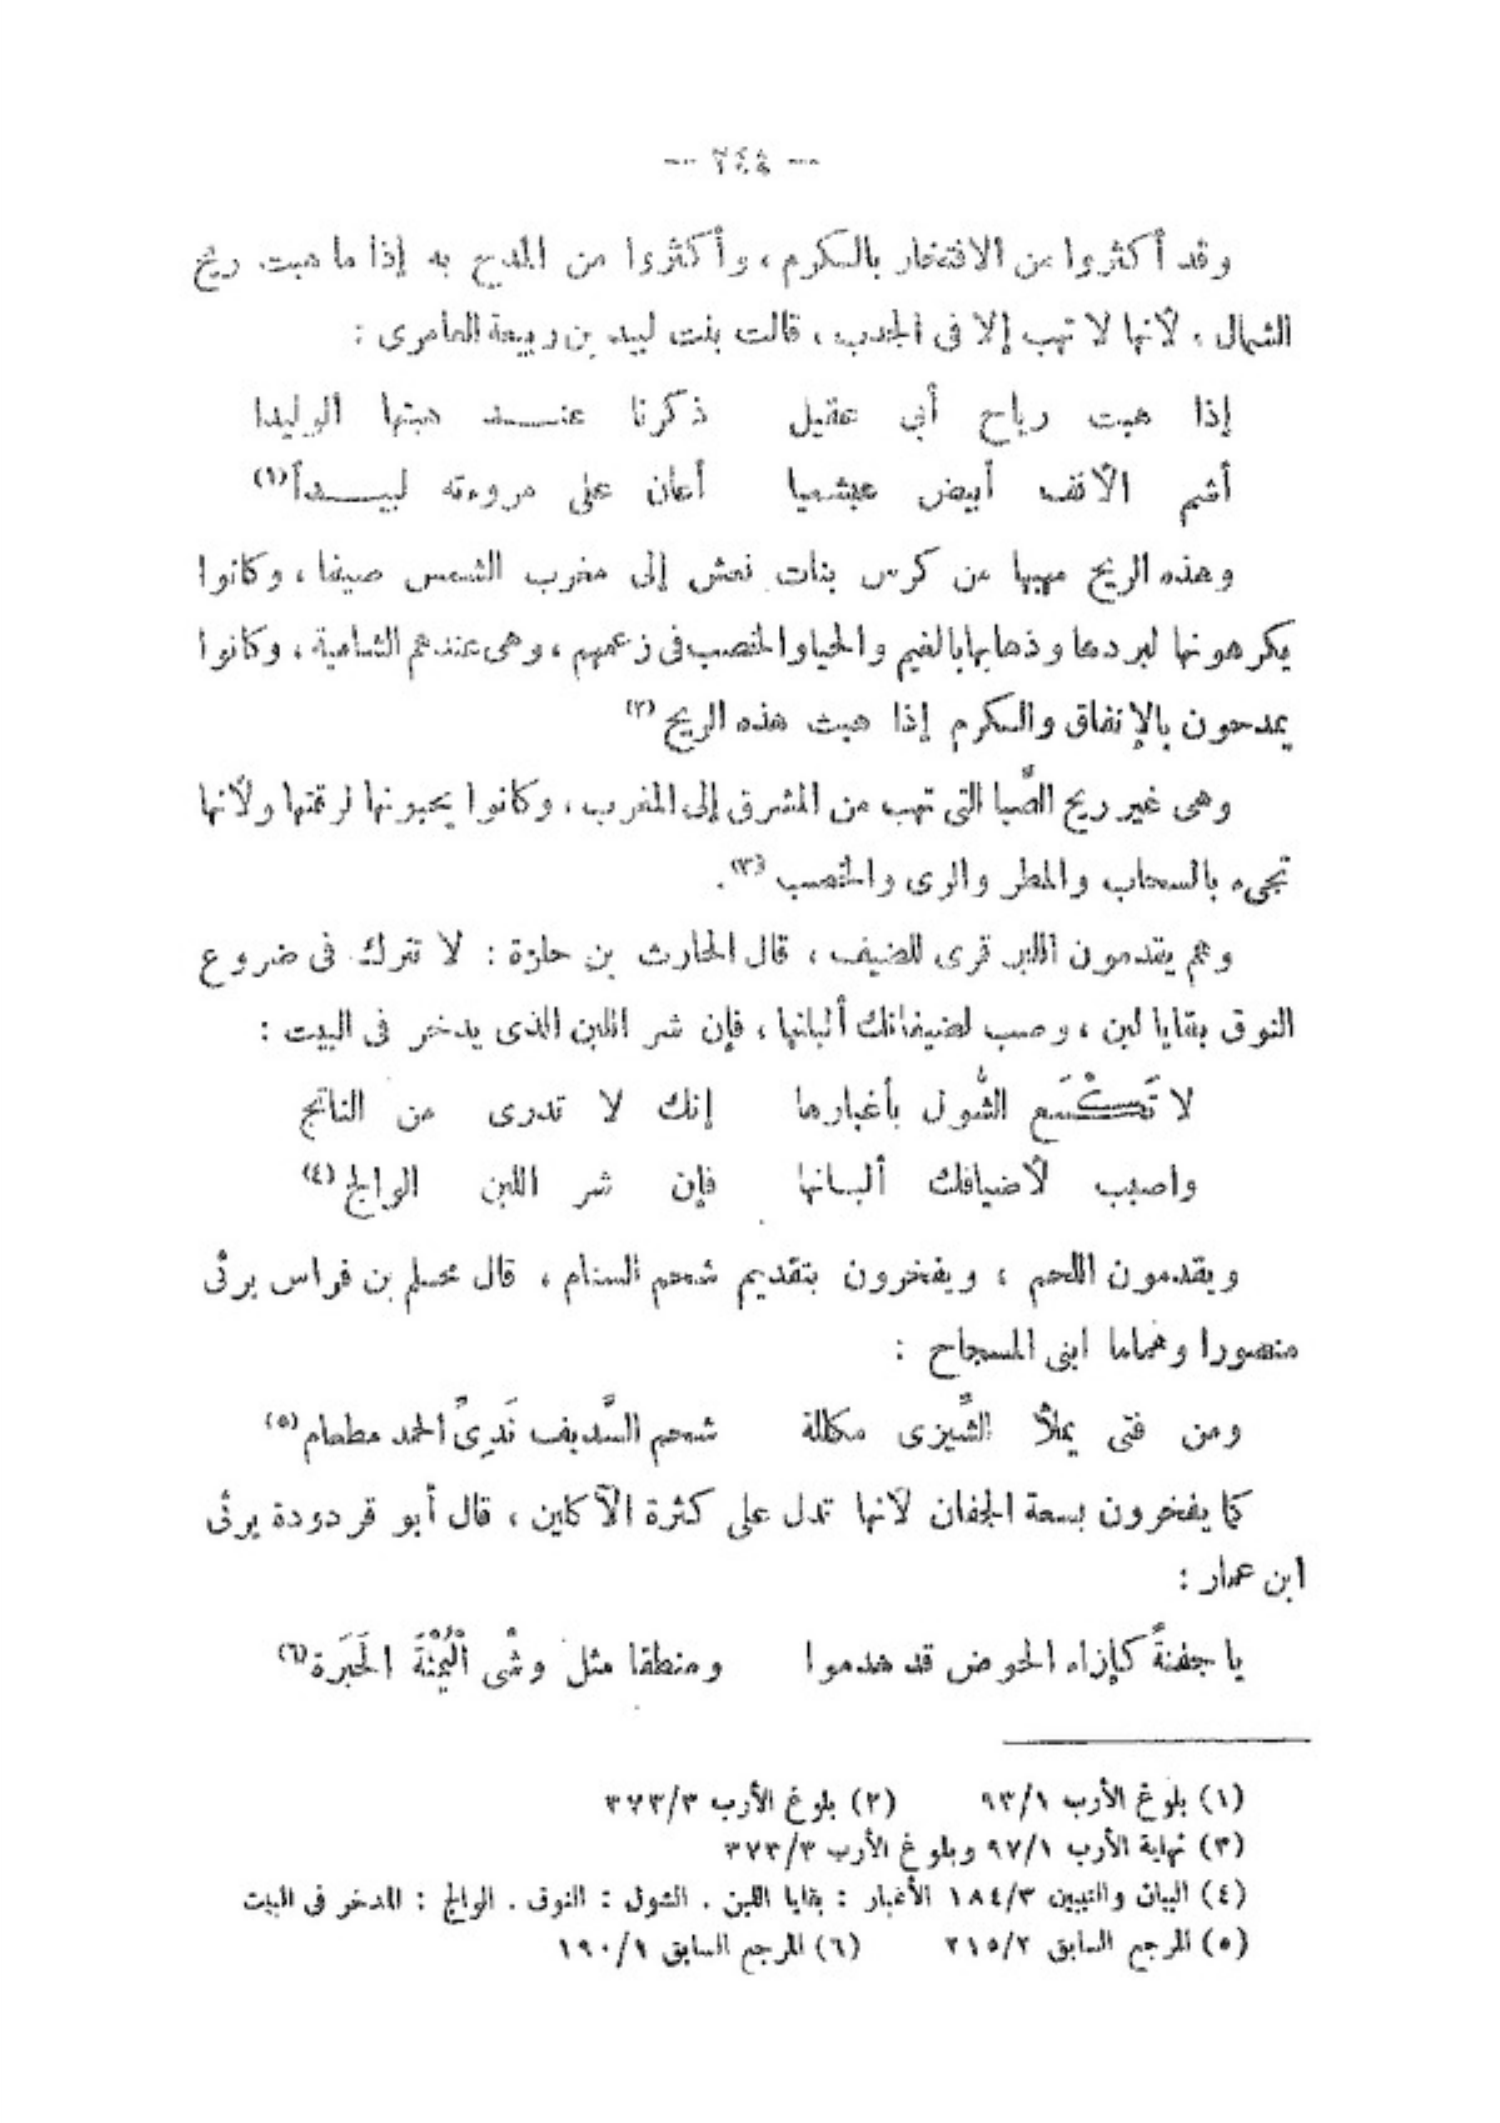 وقد أكثروا من الافتخار بالكرم ، وأكثروا من المديح به إذا ما هبت ريح
الشمال ، لأنها لا تهب إلا فى الجدب ، قالت بنت لبيد بن ربيعة العامرى :
إذا هبت رياح أبى عقيل ذكرنا عنـــد هبتها الوليدا
أشم الأنف أبيض عبشميا أعان على مروءته لبيــدأ (١)
وهذه الريح مهبها من كرسى بنات نعش إلى مغرب الشمس صيفا ، وكانوا
يكرهونها لبردها وذهابها بالغيم والحيا والخصب فى زعمهم ، وهى عندهم الشامية ، وكانوا
يمدحون بالإنفاق والكرم إذا هبت هذه الريح (٢)
وهى غير ريح الصَّبا التى تهب من المشرق إلى المغرب ، وكانوا يحبونها لرقتها ولأنها
تجىء بالسحاب والمطر والرى والخصب (٣) .
وهم يقدمون اللبن قرى للضيف ، قال الحارث بن حلزة : لا تترك فى ضروع
النوق بقايا لبن ، وصب لضيفانك ألبانها ، فإن شر اللبن الذى يدخر فى البيت :
لا تَكْسَع الشُّول بأغبارها إنك لا تدرى من الناتج
واصبب لأضيافك ألبـانها فإن شر اللبن الوالج (٤)
ويقدمون اللحم ، ويفخرون بتقديم شحم السنام ، قال محلم بن فراس يرثى
منصورا وهماما ابنى المسجاح :
ومن فتى يملأ الشِّيزى مكللة شحم السَّديف نَدِىُّ الحمد مطعام (٥)
كما يفخرون بسعة الجفان لأنها تدل على كثرة الآكلين ، قال أبو قردودة يرثى
ابن عمار :
يا جفنةً كإزاء الحوض قد هدموا ومنطقا مثل وشْى الْيُمْنَةَ الحَبَرة (٦)
(١) بلوغ الأرب ٩٣/١ (٢) بلوغ الأرب ٣٧٣/٣
(٣) نهاية الأرب ٩٧/١ وبلوغ الأرب ٣٧٣/٣
(٤) البيان والتبيين ١٨٤/٣ الأغبار : بقايا اللبن . الشول : النوق . الوالج : المدخر فى البيت
(٥) المرجع السابق ٢١٥/٢ (٦) المرجع السابق ١٩٠/١